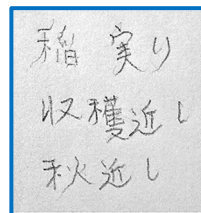 稲 実り
収穫近し
秋近し